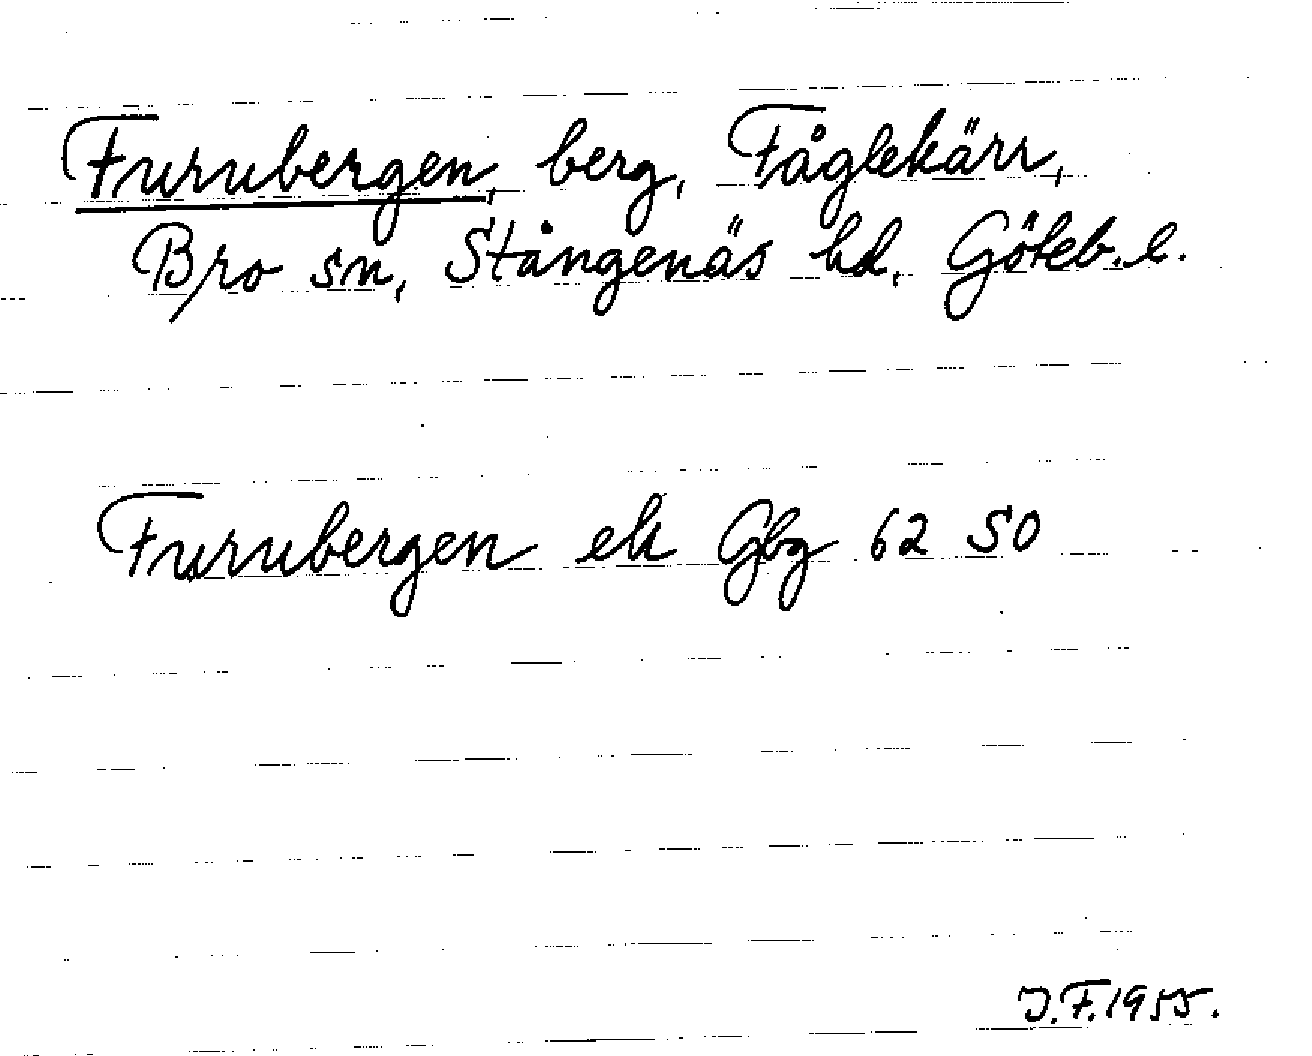 Furubergen, berg, Fåglekärr,
Bro sn, Stångenäs hd, Göteb. l.
Furubergen ek Gbg 62 50
J.F. 1955.